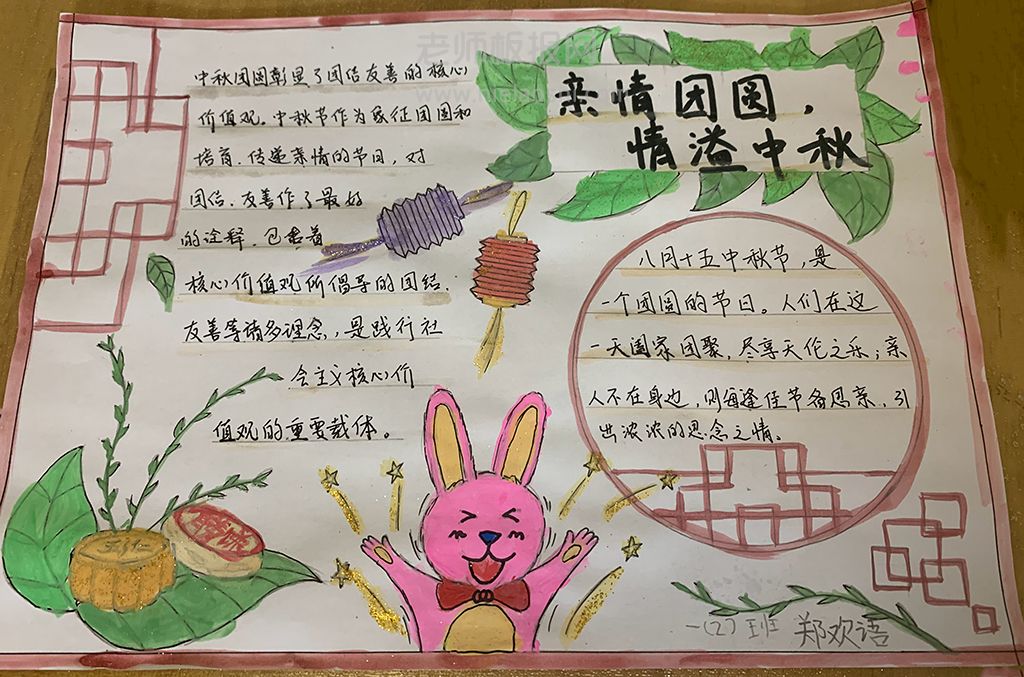 老师板报网
亲情团圆，
情溢中秋
中秋团圆彰显了团结友善的核心
价值观。中秋节作为象征团圆和
培育、传递亲情的节日，对
团结、友善作了最好
的诠释，包含着
核心价值观所倡导的团结、
友善等诸多理念，是践行社
会主义核心价
值观的重要载体。
八月十五中秋节，是
一个团圆的节日。人们在这
一天阖家团聚，尽享天伦之乐；亲
人不在身边，则每逢佳节备思亲，引
出浓浓的思念之情。
五仁
一(2)班 郑欢语